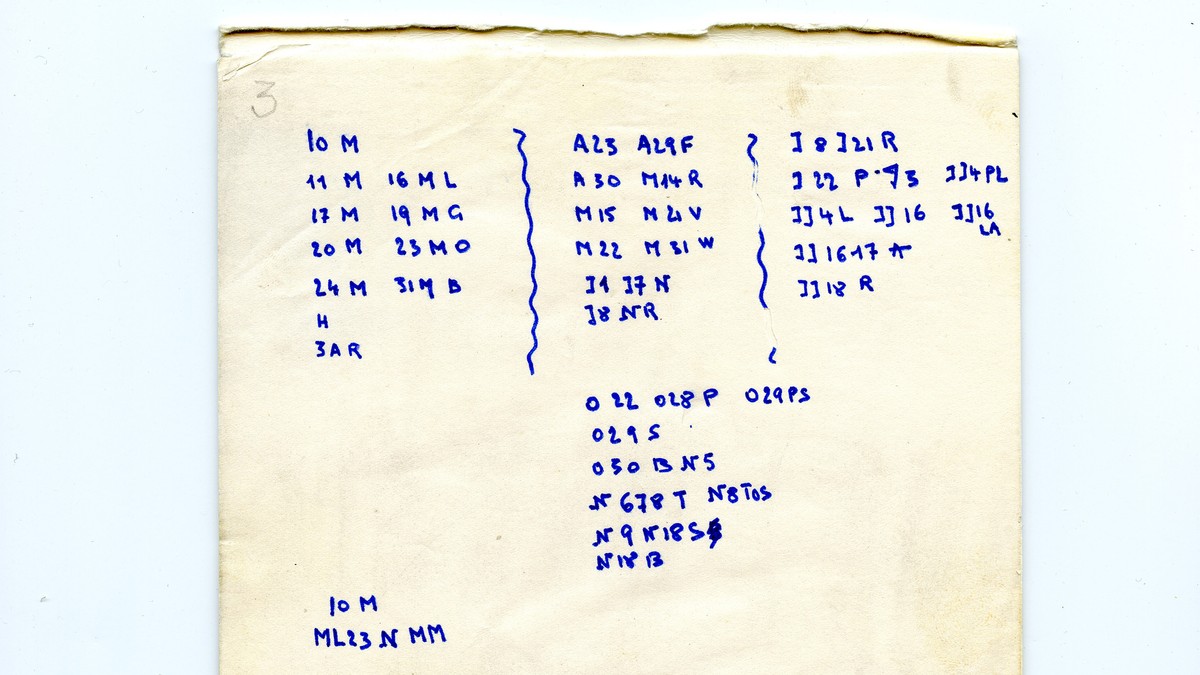 3
10 M
11 M 16 M L
17 M 19 M G
20 M 23 M O
24 M 31 M B
H
3 A R
A23 A29F
A 30 M14 R
M 15 M 21 V
M 22 M 31 W
J1 J7 N
J8 N R
J 8 J21 R
J 22 P JJ4 PL
JJ4 L JJ 16 JJ16
LA
JJ 16-17 A
JJ 18 R
O 22 O28 P O29 PS
O29 S
O30 B N 5
N 678 T N8 TOS
N 9 N18 S
N18 B
10 M
ML23 N MM